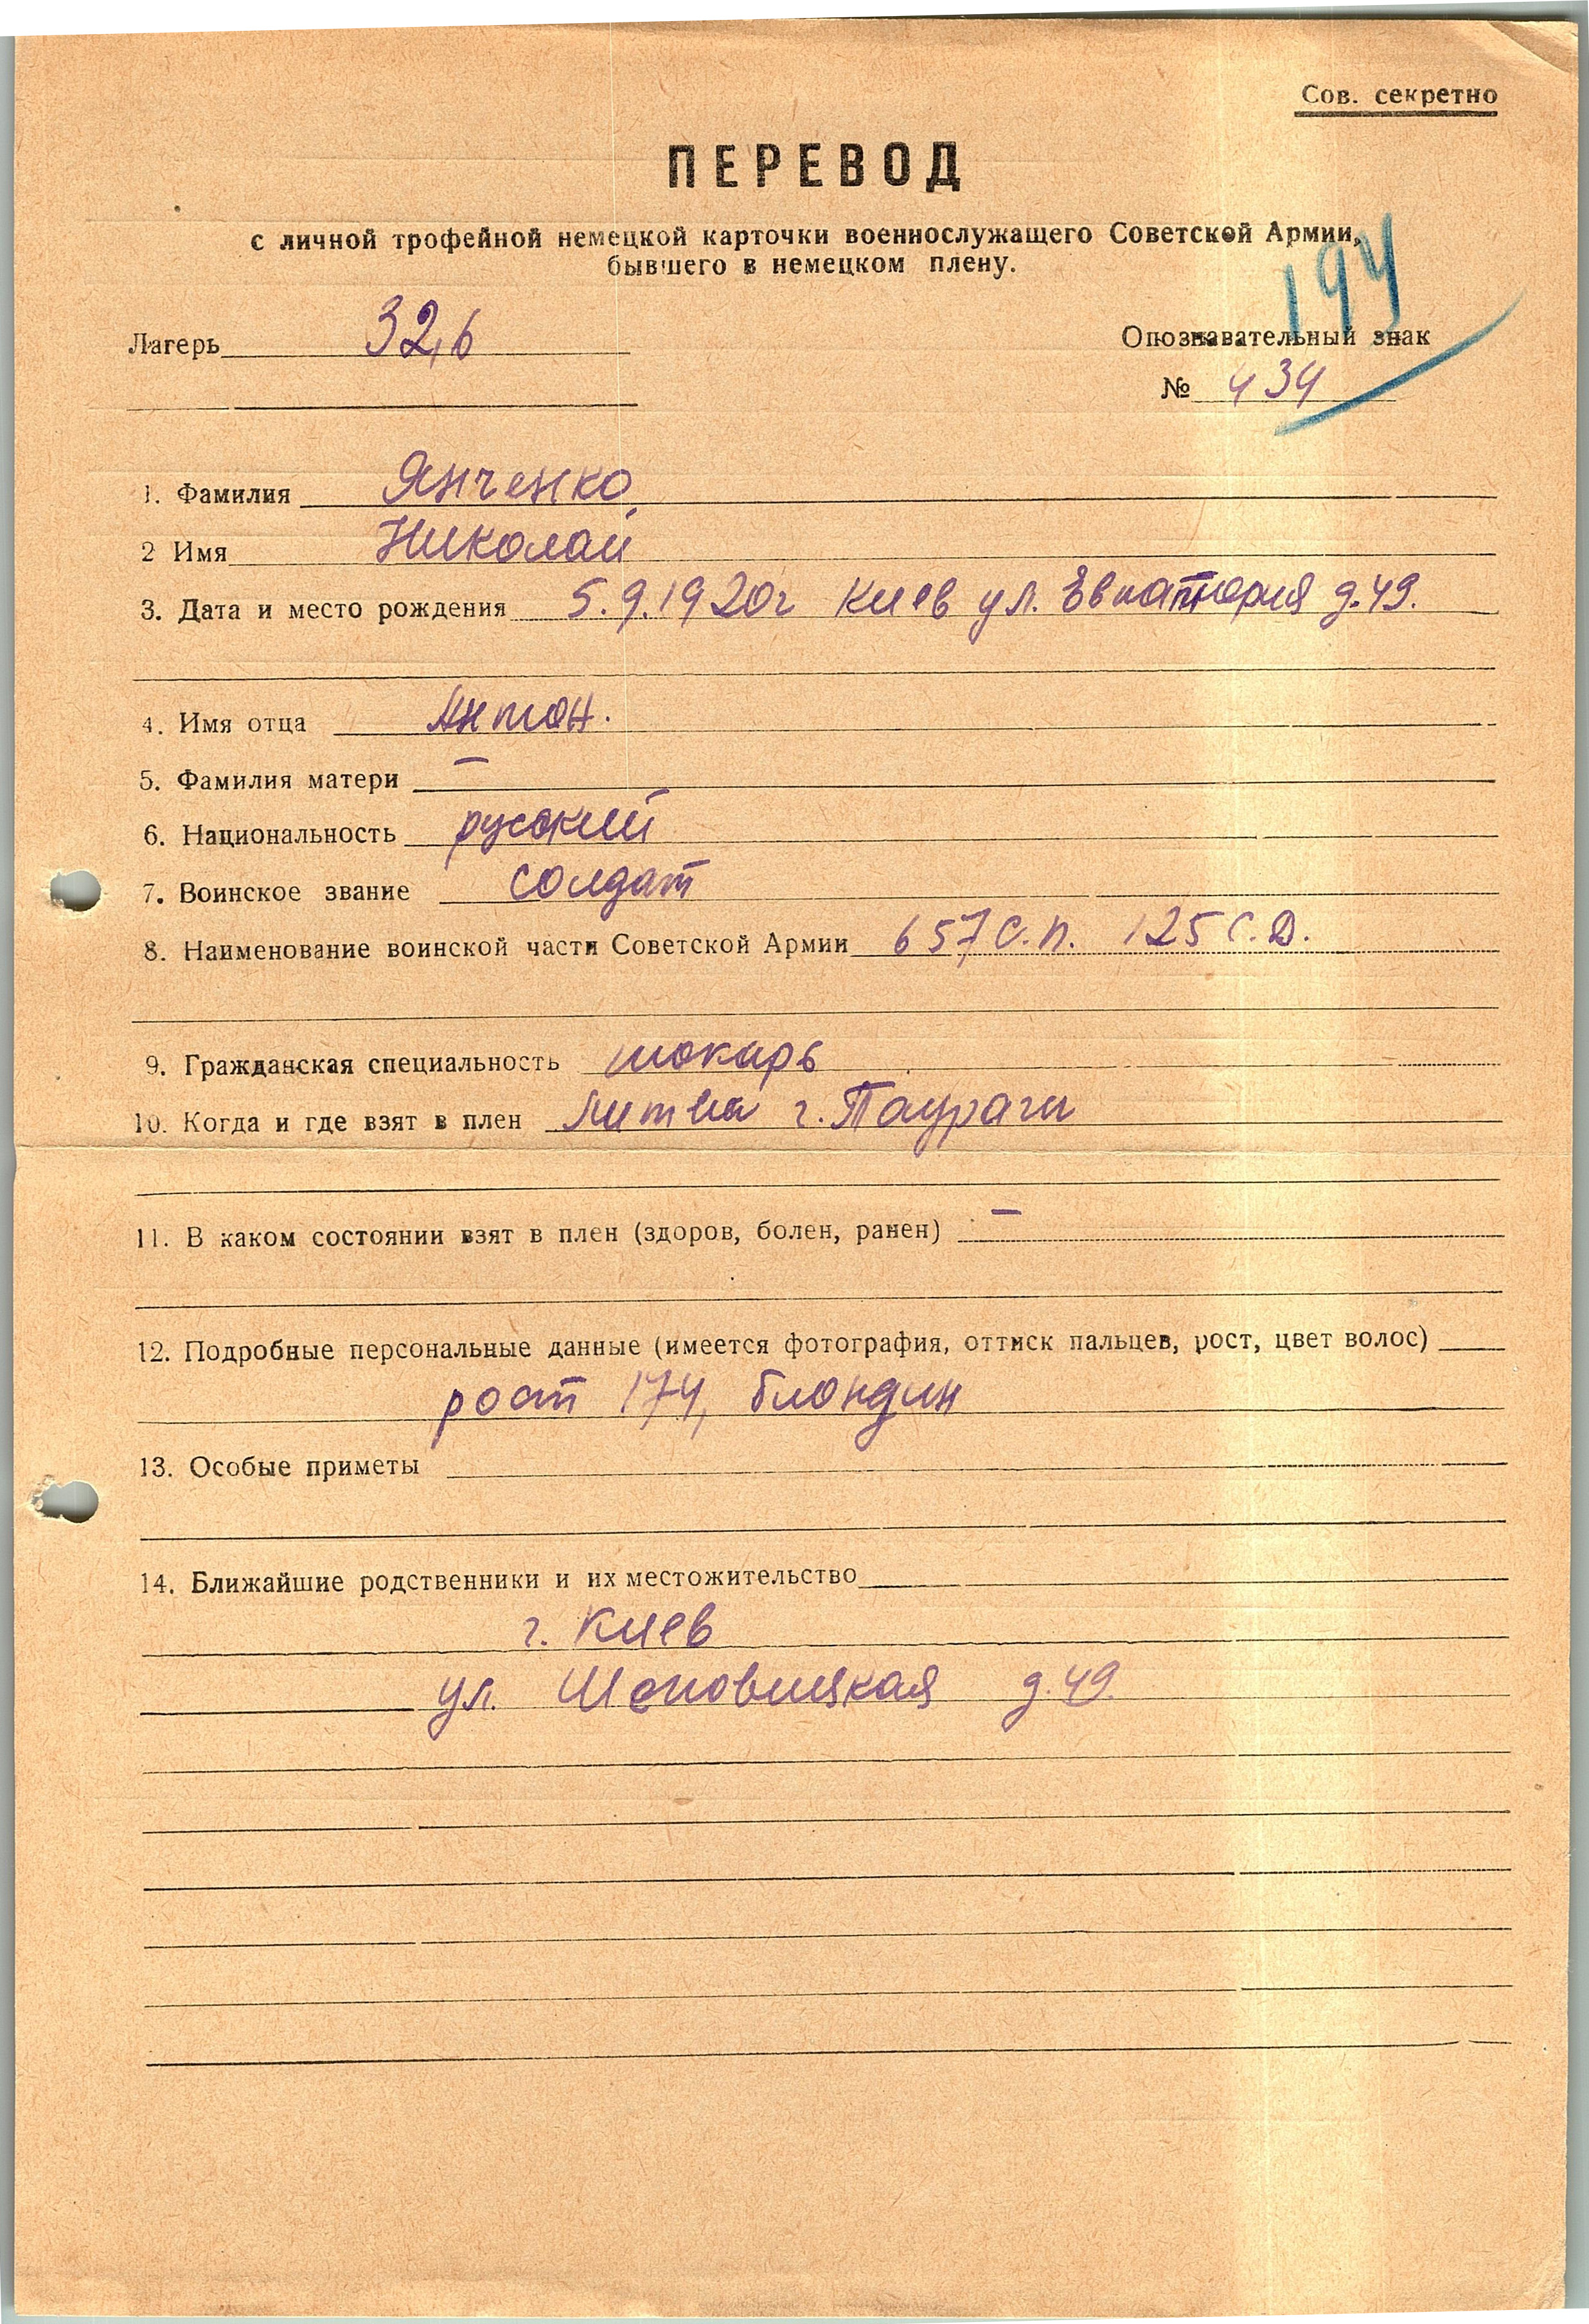 Сов. секретно
ПЕРЕВОД
с личной трофейной немецкой карточки военнослужащего Советской Армии,
бывшего в немецком плену.
194
Лагерь 32,6
Опознавательный знак
№ 434
1. Фамилия Янченко
2 Имя Николай
3. Дата и место рождения 5.9.1920г Киев ул. Евпатория д.49.
4. Имя отца Антон.
5. Фамилия матери —
6. Национальность русский
7. Воинское звание солдат
8. Наименование воинской части Советской Армии 657 С.П. 125 С.Д.
9. Гражданская специальность токарь
10. Когда и где взят в плен Литва г. Таураги
11. В каком состоянии взят в плен (здоров, болен, ранен) —
12. Подробные персональные данные (имеется фотография, оттиск пальцев, рост, цвет волос)
рост 174, блондин
13. Особые приметы
14. Ближайшие родственники и их местожительство
г. Киев
ул. д. 49.